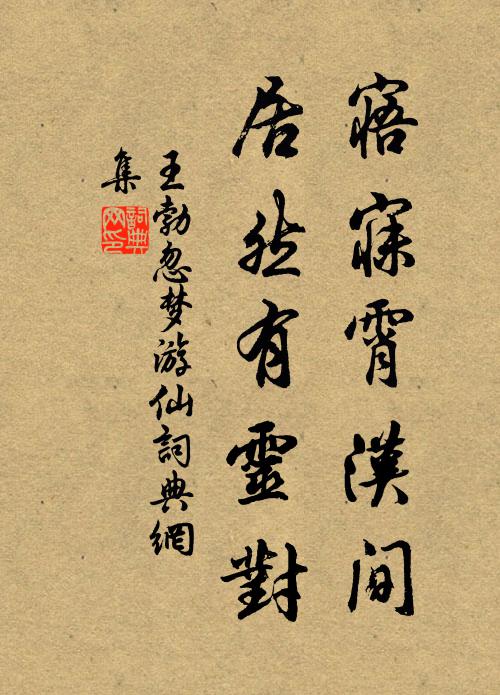 寤寐霄漢間
居然有靈對
王勃忽梦游仙詞典網
集
詞典网印